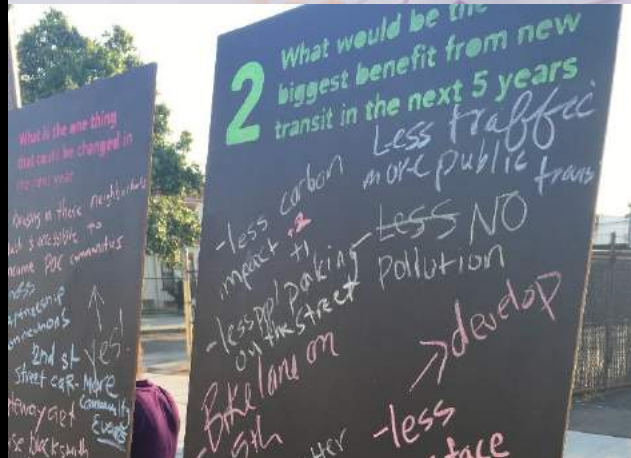 What is the one thing
that could be changed in
the next year
housing in these neighborhoods
accessible to
income POC communities
2nd st
street car - More
Community
Events
Yes!
2
What would be the
biggest benefit from new
transit in the next 5 years
Less traffic
more public trans
-less carbon
impact +2
+1
-less ppl parking
on the street
Less NO
Pollution
Bike lane on
5th
develop
-less